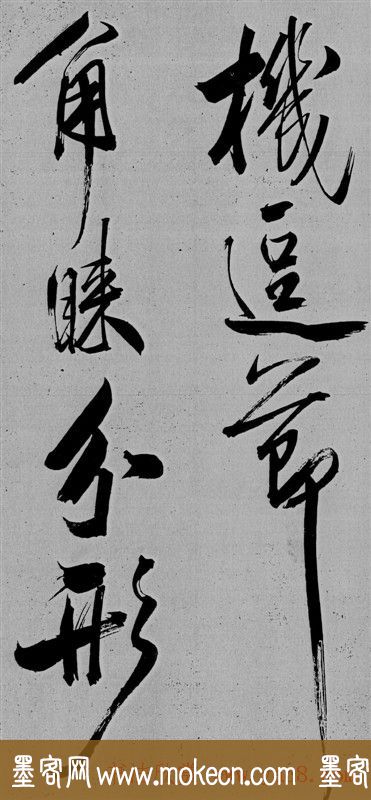 機逗節
角睞分形
墨客网www.mokecn.com 墨客